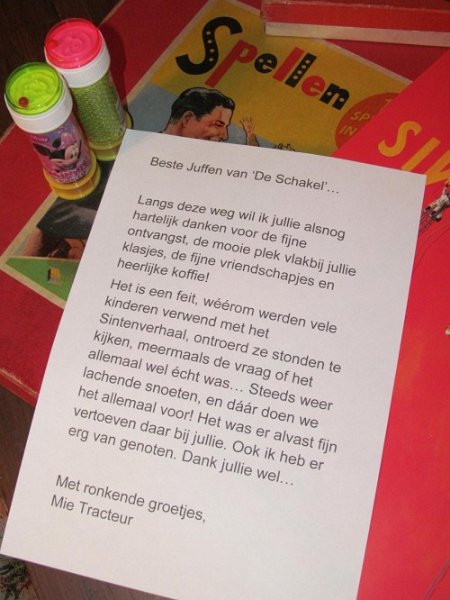 Spellen
SI
Beste Juffen van ‘De Schakel’...
Langs deze weg wil ik jullie alsnog
hartelijk danken voor de fijne
ontvangst, de mooie plek vlakbij jullie
klasjes, de fijne vriendschapjes en
heerlijke koffie!
Het is een feit, wéérom werden vele
kinderen verwend met het
Sintenverhaal, ontroerd ze stonden te
kijken, meermaals de vraag of het
allemaal wel écht was... Steeds weer
lachende snoeten, en dáár doen we
het allemaal voor! Het was er alvast fijn
vertoeven daar bij jullie. Ook ik heb er
erg van genoten. Dank jullie wel...
Met ronkende groetjes,
Mie Tracteur